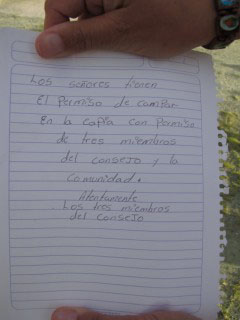 Los señores tienen
El permiso de campar
En la copia con permiso
de tres miembros
del consejo y la
comunidad.
Atentamente
Los tres miembros
del consejo